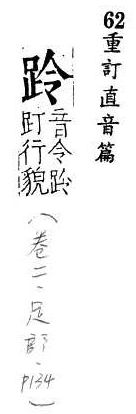 62重訂直音篇
跉
音令跉
䟓行貌
（卷二、足部、P134）